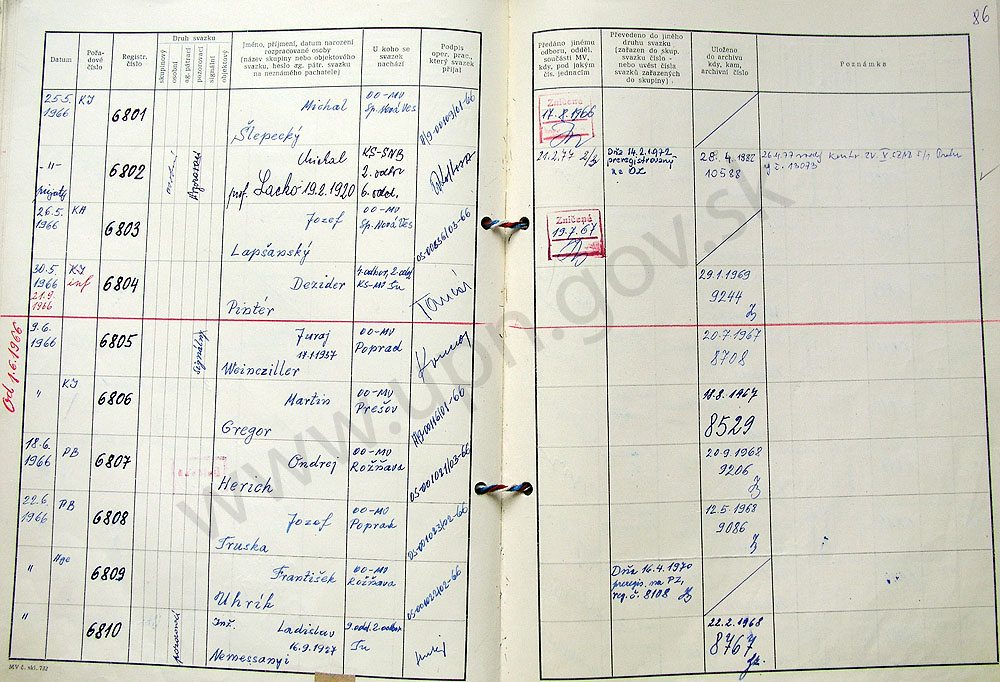 86
Datum
Pořadové číslo
Registr. číslo
Druh svazku
skupinový
osobní
ag. pátrací
pozorovací
signální
objektový
Jméno, příjmení, datum narození
rozpracované osoby
(název skupiny nebo objektového
svazku, heslo ag. pátr. svazku
na neznámého pachatele)
U koho se
svazek
nachází
Podpis
oper. prac.,
který svazek
přijal
Předáno jinému
odboru, odděl.
součásti MV,
kdy, pod jakým
čís. jednacím
Převedeno do jiného
druhu svazku
(zařazen do skup.
svazku číslo -
nebo uvést čísla
svazků zařazených
do skupiny)
Uloženo
do archivu
kdy, kam,
archivní číslo
Poznámka
25.5. 1966 KI 6801 Michal Šlepecký OO-MV Sp. Nová Ves
Zničené
17.8.1966
-"- 6802 Michal prof. Lacko 19.2.1920 KS-SNB 2. odbor 6. odd.
21.2.77
Dňa 14.2.1972
preregistrovaný
na OZ
28.4.1882
10588
26.5. 1966 6803 Jozef Lapšanský OO-MV Sp. Nová Ves 05-00856/03-66
Zničené
19.7.67
30.5. 1966 KI inf 21.9. 1966 6804 Dezider Pintér
29.1.1969
9244
Od 1.6.1966
9.6. 1966 6805 signálny Juraj 17.1.1937 Weincziller OO-MV Poprad
20.7.1967
8708
" KI 6806 Martin Gregor OO-MV Prešov
18.8.1967
8529
18.6. 1966 PB 6807 Ondrej Herich OO-MV Rožňava 05-001021/03-66
20.9.1968
9206
22.6. 1966 PB 6808 Jozef Truska OO-MV Poprad 05-001023/02-66
12.5.1968
9086
" 6809 František Uhrík OO-MV Rožňava 05-001022/02-66
Dňa 16.4.1970
preregis. na PZ,
reg. č. 8108
" 6810 Inž. Ladislav 16.9.1927 Nemessanyi 9. odd. 2. odbor
22.2.1968
8767
MV č. skl. 732
www.upn.gov.sk